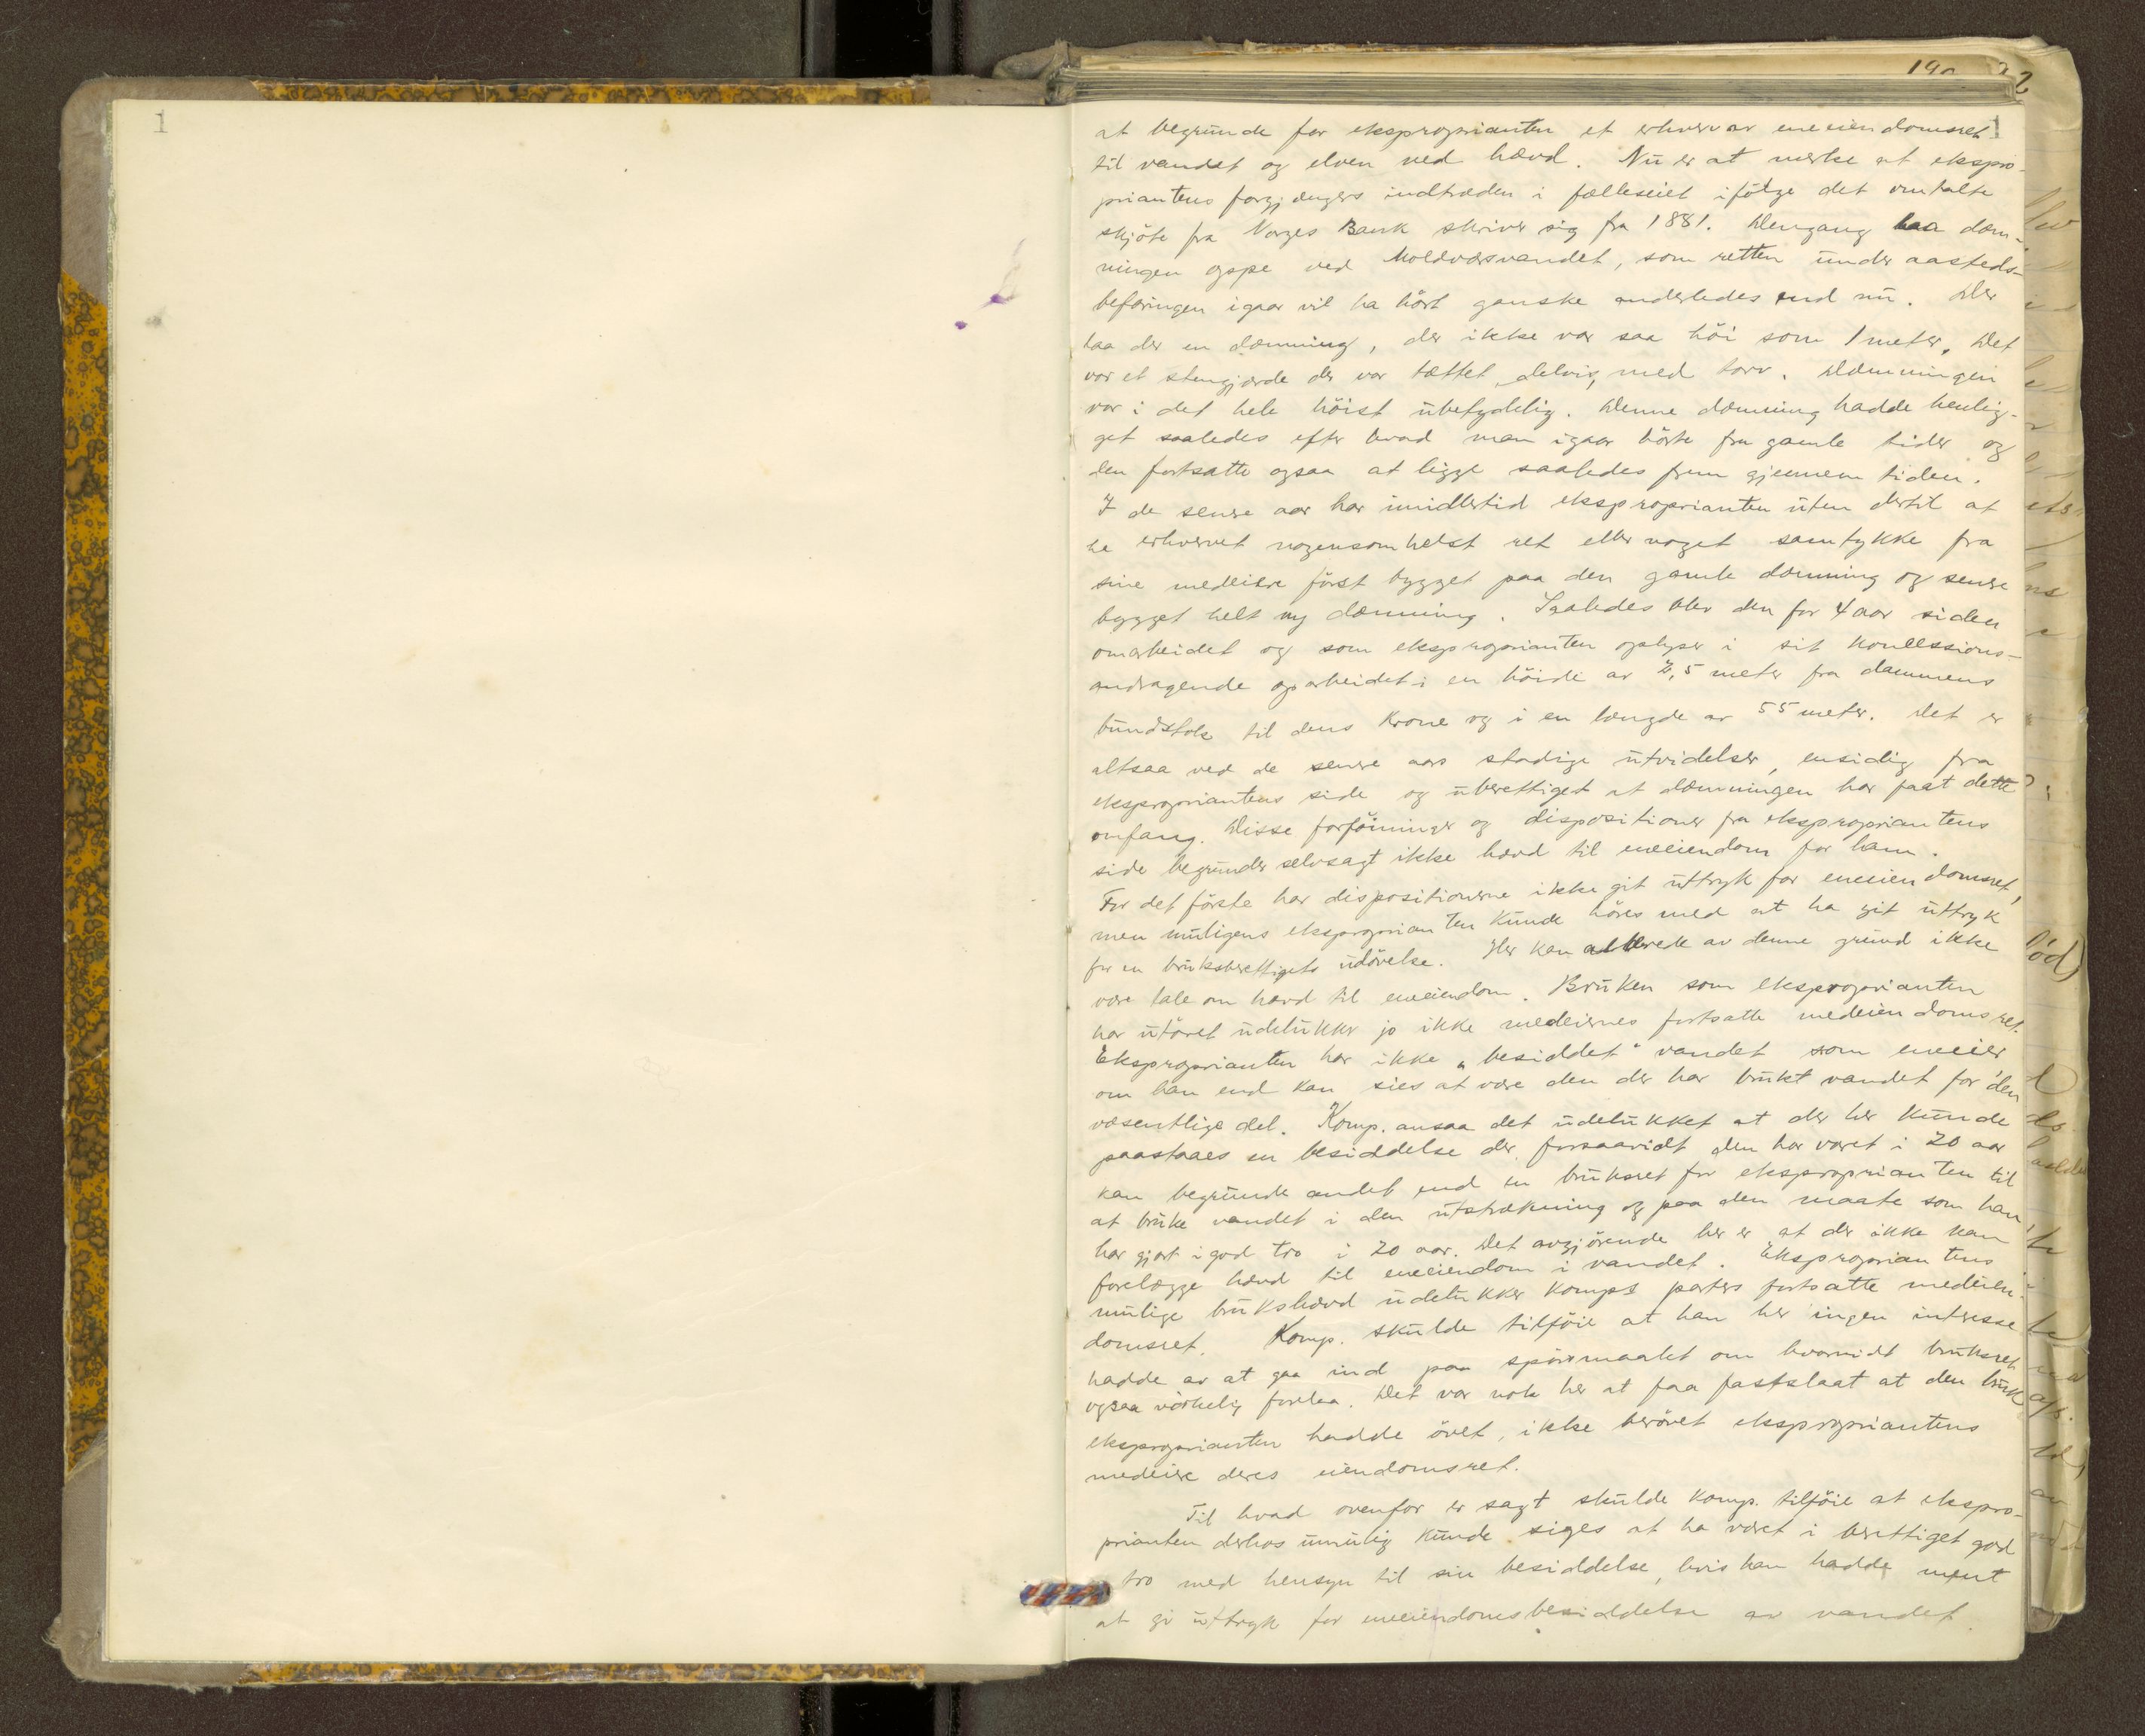 1
190 2
at begrunde for eksproprianten et erhverv av eneeiendomsret
til vandet og elven ved hævd. Nu er at merke at ekspro-
priantens forgjængers indtræden i fælleseiet ifölge det omtalte
skjöte fra Norges Bank skriver sig fra 1881. Dengang laa dæm-
ningen oppe ved Moldværsvandet, som retten under aasteds-
befaringen igaar vil ha hört ganske anderledes end nu. Der
laa der en dæmning, der ikke var saa höi som 1 meter. Det
var et stengjærde der var tættet, delvis, med torv. Dæmningen
var i det hele höist ubetydelig. Denne dæmning hadde henlig-
get saaledes efter hvad man igaar hörte fra gamle tider og
den fortsatte ogsaa at ligge saaledes frem gjennem tiden.
I de senere aar har imidlertid eksproprianten uten dertil at
ha erhvervet nogensomhelst ret eller noget samtykke fra
sine medeiere först bygget paa den gamle dæmning og senere
bygget helt ny dæmning. Saaledes blev den for 4 aar siden
omarbeidet og som eksproprianten oplyser i sit koncessions-
andragende oparbeidet i en höide av 2,5 meter fra dammens
bundstok til dens krone og i en længde av 55 meter. Det er
altsaa ved de senere aars stadige utvidelser, ensidig fra
ekspropriantens side og uberettiget at dæmningen har faat dette
omfang. Disse forföininger og dispositioner fra ekspropriantens
side begrunder selvsagt ikke hævd til eneeiendom for ham.
For det förste har dispositionerne ikke git uttryk for eneeiendomsret,
men muligens eksproprianten kunde höres med at ha git uttryk
for en bruksberettigets udövelse. Her kan allerede av denne grund ikke
være tale om hævd til eneeiendom. Bruken som eksproprianten
har utövet udelukker jo ikke medeiernes fortsatte medeiendomsret.
Eksproprianten har ikke „besiddet" vandet som eneeier
om han end kan sies at være den der har brukt vandet for den
væsentlige del. Komp. ansaa det udelukket at der her kunde
paastaaes en besiddelse der, forsaavidt den har været i 20 aar
kan begrunde andet end en bruksret for eksproprianten til
at bruke vandet i den utstrækning og paa den maate som han
har gjort i god tro i 20 aar. Det avgjörende her er at der ikke kan
forelægge hævd til eneeiendom i vandet. Ekspropriantens
mulige brukshævd udelukker komps parters fortsatte medeien-
domsret. Komp. skulde tilföie at han her ingen interesse
hadde av at gaa ind paa spörsmaalet om hvorvidt bruksret
ogsaa virkelig forelaa. Det var nok her at faa fastslaat at den bruk
eksproprianten hadde övet, ikke berövet ekspropriantens
medeiere deres eiendomsret.
Til hvad ovenfor er sagt skulde komp. tilföie at ekspro-
prianten derhos umulig kunde siges at ha været i berettiget god
tro med hensyn til sin besiddelse, hvis han hadde ment
at gi uttryk for eneeiendomsbesiddelse av vandet.